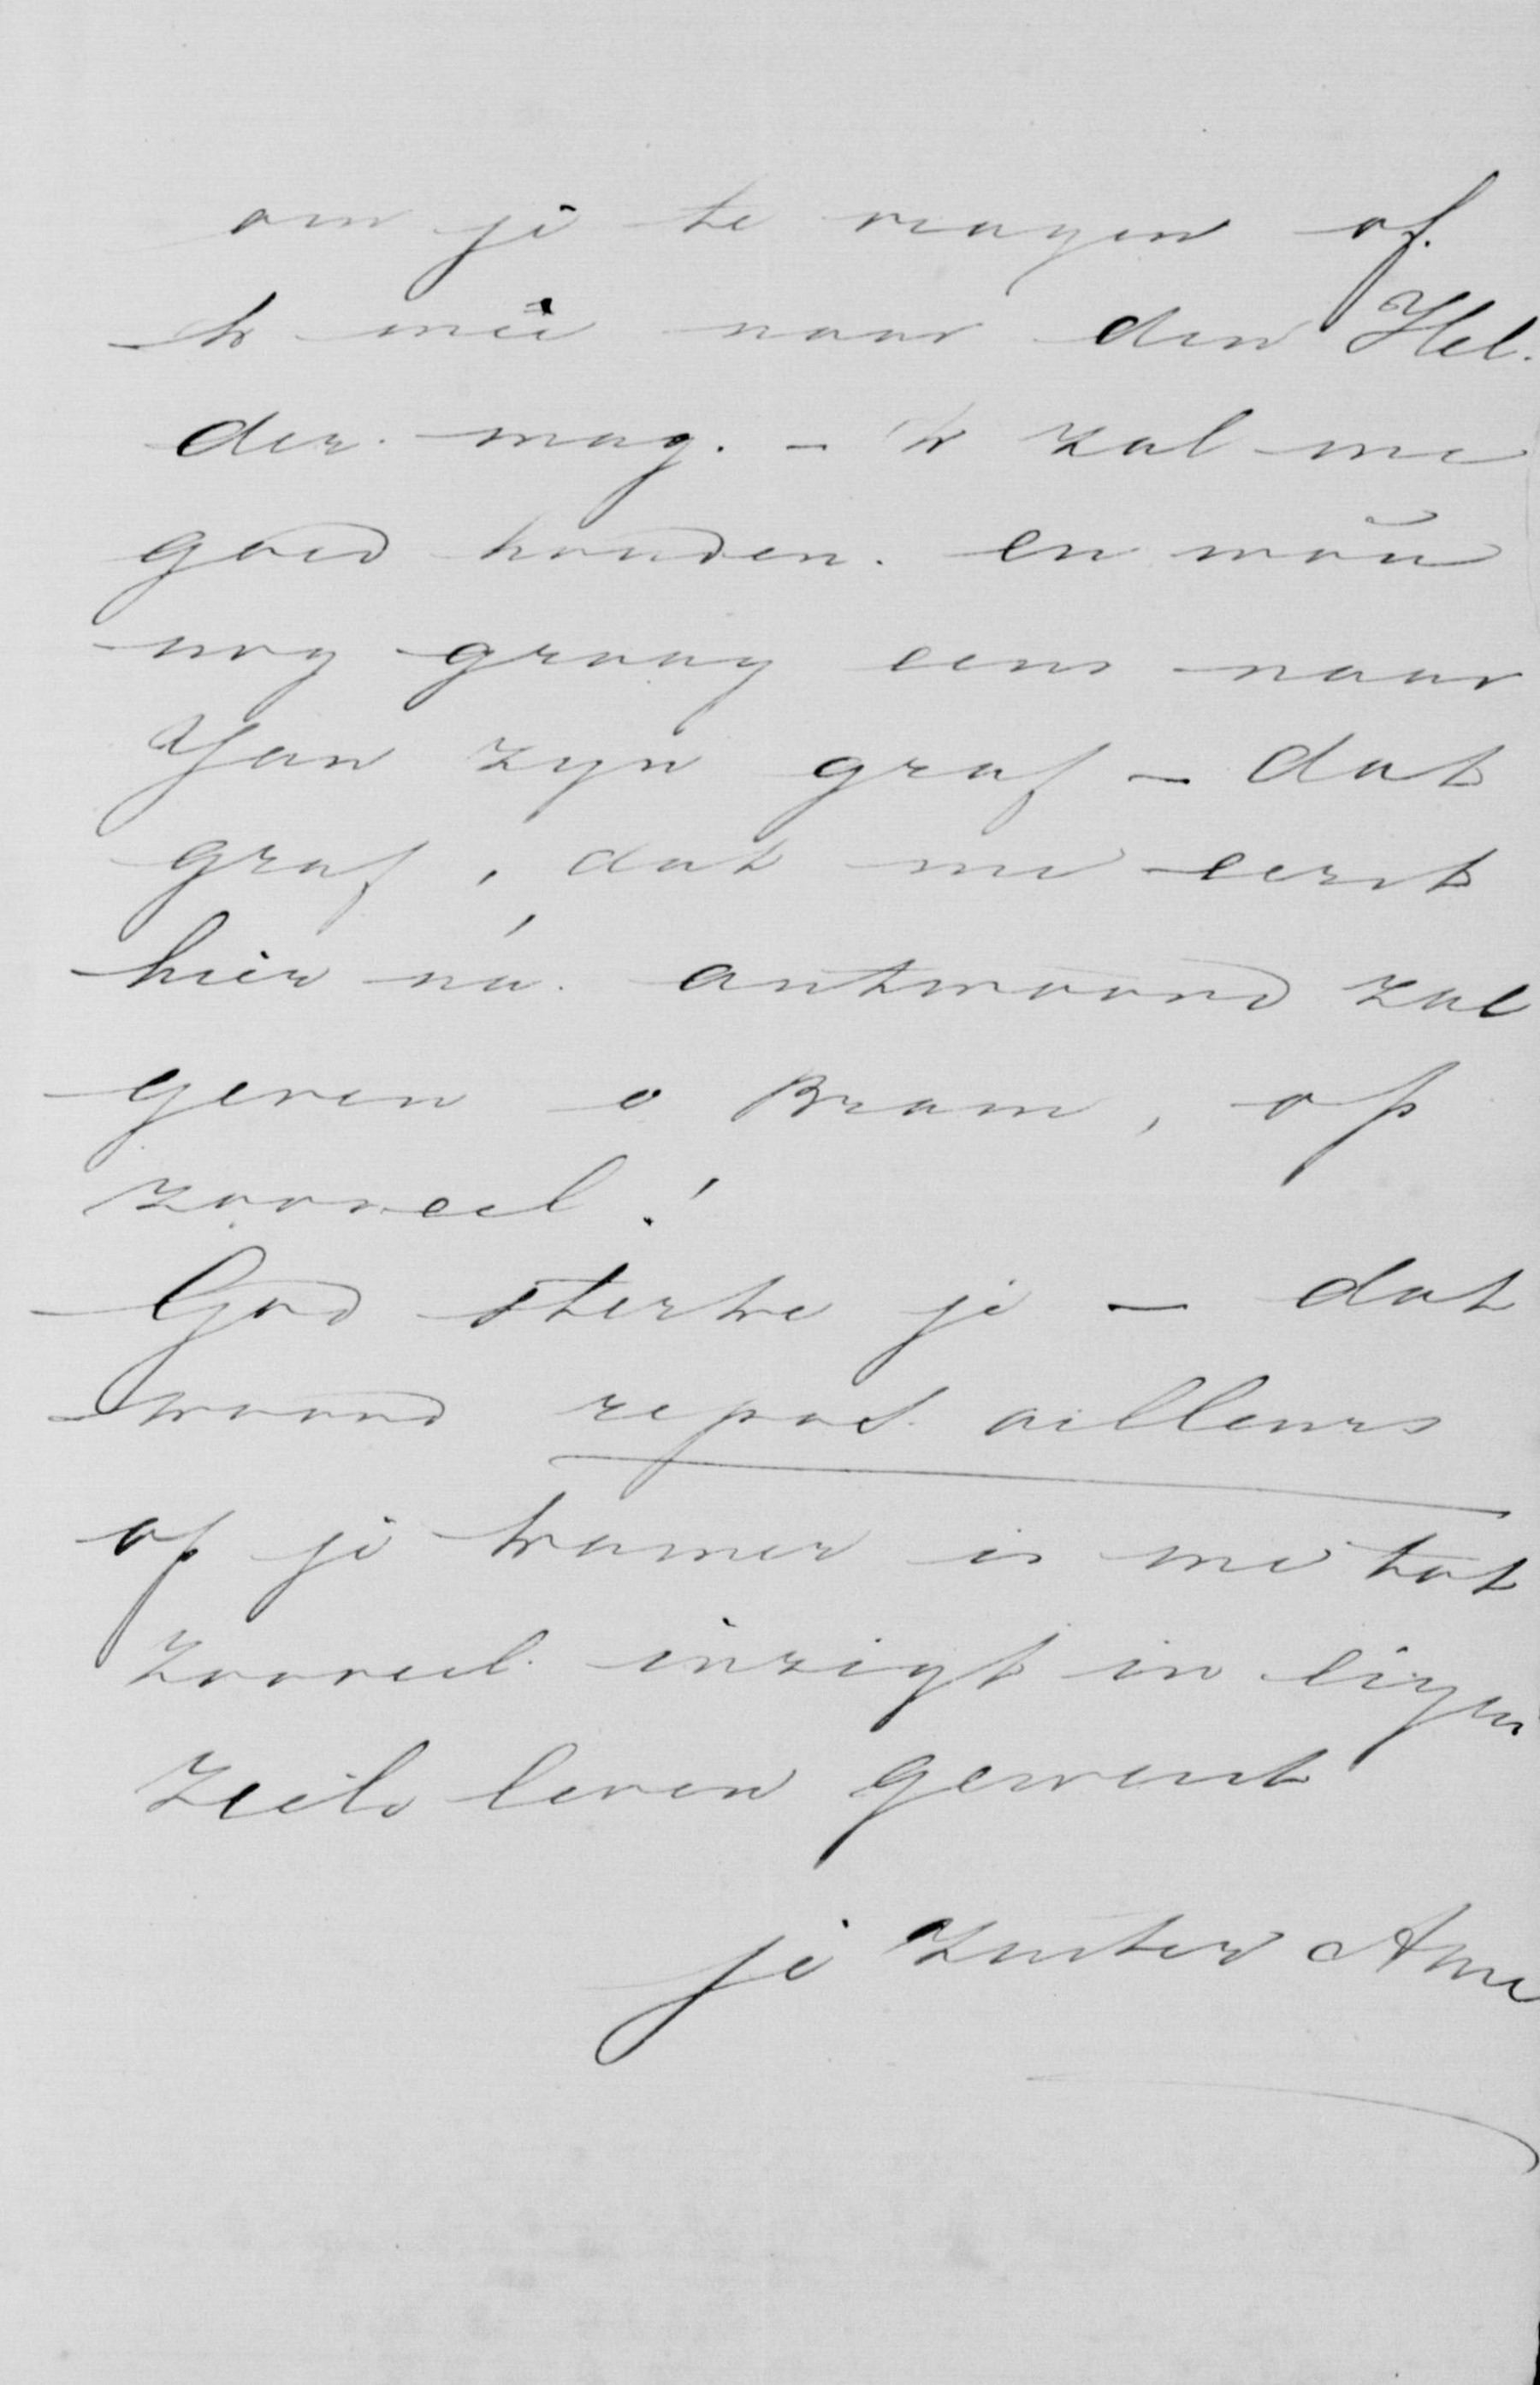 om je te vragen of
'k meê naar den Hel-
der mag. - 'k zal me
goed houden. en woû
nog graag eens naar
Jan zyn graf - dat
graf, dat me eerst
hier ná antwoord zal
geven o Bram, op
zooveel!
God sterke je - dat
woord repos ailleurs
op je kamer is me tot
zooveel inzigt in eigen
ziels leven geweest
je zuster Anna